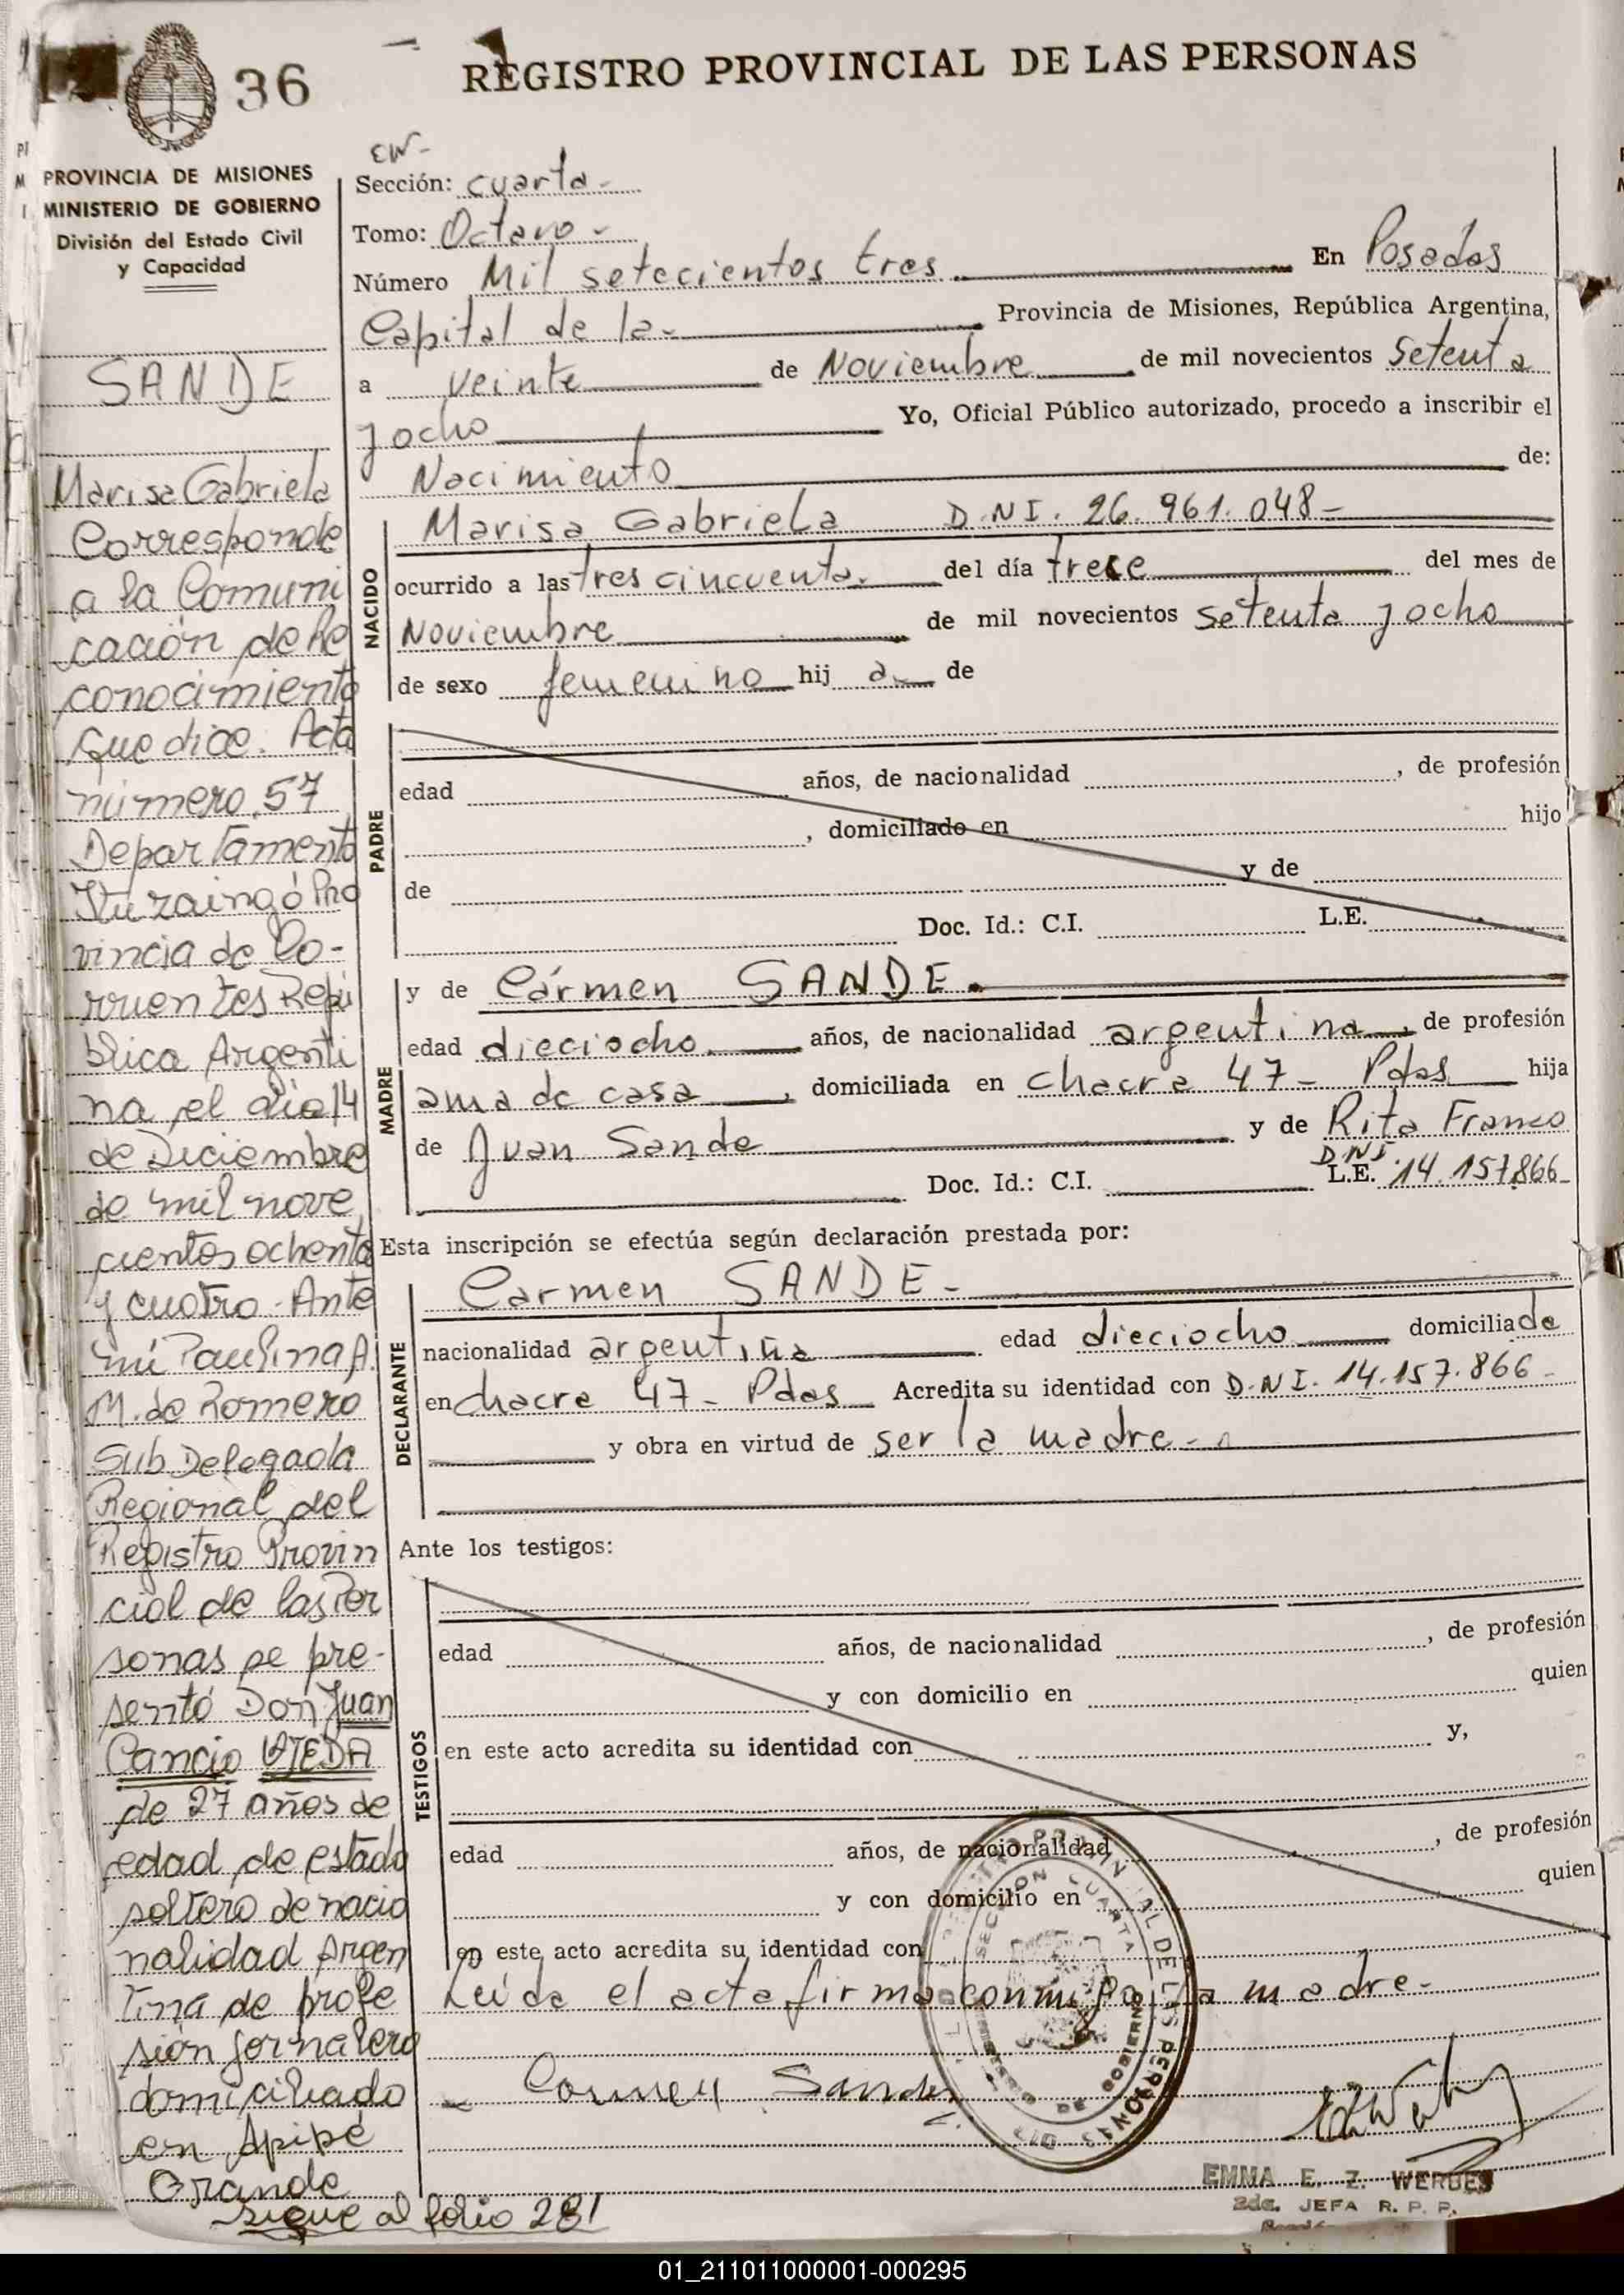 36
REGISTRO PROVINCIAL DE LAS PERSONAS
PROVINCIA DE MISIONES
MINISTERIO DE GOBIERNO
División del Estado Civil
y Capacidad
SANDE
Marisa Gabriela
Corresponde
a la Comuni
cación de Re
conocimiento
que dice. Acta
número 57
Departamento
Ituzaingó Pro
vincia de Co-
rrientes Repú
blica Argenti
na, el día 14
de Diciembre
de mil nove
cientos ochenta
y cuatro. Ante
mí Paulina A.
M. de Romero
Sub Delegada
Regional del
Registro Provin
cial de las Per
sonas se pre-
sentó Don Juan
Cancio OJEDA
de 27 años de
edad, de estado
soltero de nacio
nalidad Argen
tina de profe
sión jornalero
domiciliado
en Apipé
Grande
sigue al folio 281
EW-
Sección: cuarta-
Tomo: Octavo-
Número Mil setecientos tres En Posadas
Capital de la- Provincia de Misiones, República Argentina,
a veinte de Noviembre de mil novecientos setenta
y ocho Yo, Oficial Público autorizado, procedo a inscribir el
Nacimiento de:
NACIDO
Marisa Gabriela D.N.I. 26.961.048-
ocurrido a las tres cincuenta del día trece del mes de
Noviembre de mil novecientos setenta y ocho
de sexo femenino hij a de
PADRE
edad años, de nacionalidad , de profesión
, domiciliado en hijo
de y de
Doc. Id.: C.I. L.E.
MADRE
y de Cármen SANDE.
edad dieciocho años, de nacionalidad argentina, de profesión
ama de casa, domiciliada en chacra 47- Pdas hija
de Juan Sande y de Rita Franco
D.N.I.
Doc. Id.: C.I. L.E. 14.157.866-
Esta inscripción se efectúa según declaración prestada por:
DECLARANTE
Carmen SANDE-
nacionalidad argentina edad dieciocho domiciliada
en chacra 47- Pdas Acredita su identidad con D.N.I. 14.157.866-
y obra en virtud de ser la madre-
Ante los testigos:
TESTIGOS
edad años, de nacionalidad , de profesión
y con domicilio en quien
en este acto acredita su identidad con y,
edad años, de nacionalidad , de profesión
y con domicilio en quien
en este acto acredita su identidad con
Leída el acta firma conmigo la madre-
Carmen Sande
SECCION CUARTA
MINISTERIO DE GOBIERNO
EMMA E. Z. WERBES
2da. JEFA R. P. P.
01_211011000001-000295